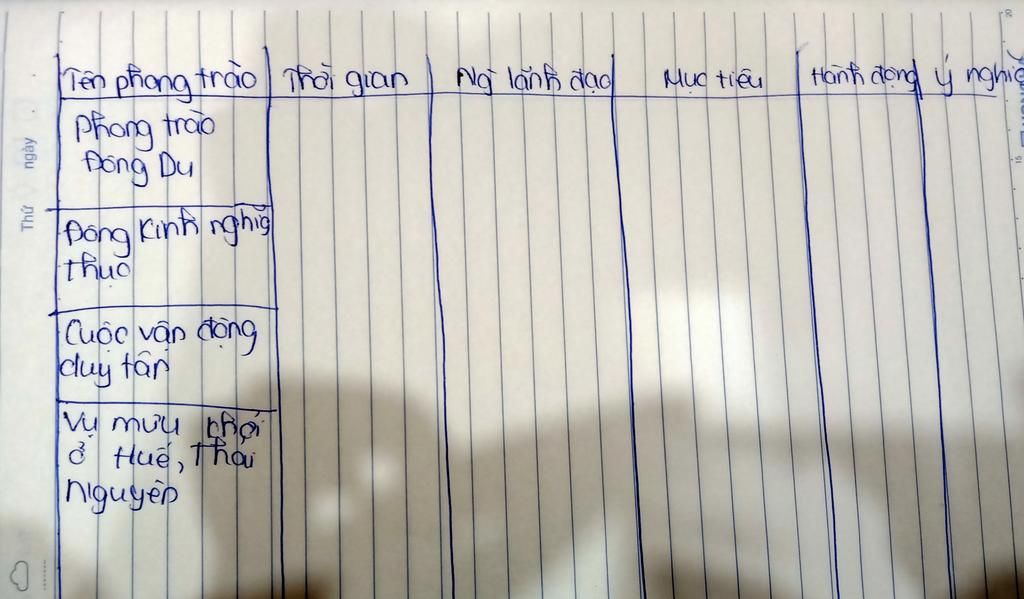 Tên phong trào Thời gian Ng` lãnh đạo Mục tiêu Hành động ý nghĩa
Phong trào
Đông Du
Đông Kinh nghĩa
thục
Cuộc vận động
duy tân
Vụ mưu khởi
ở Huế, Thái
Nguyên
Thứ ngày
20
15